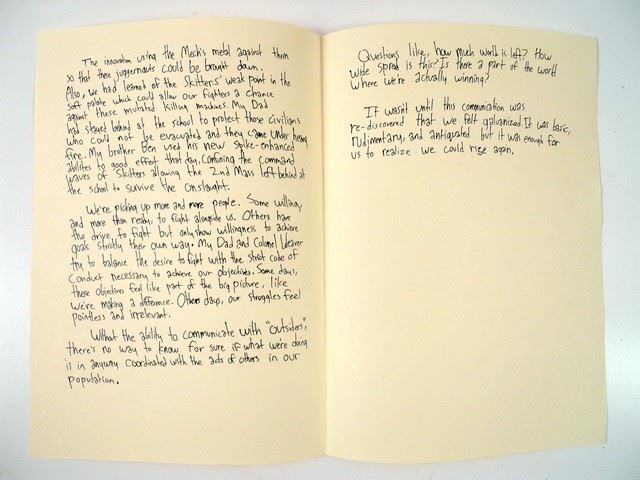 The innovation using the Mech's metal against them
so that these juggernauts could be brought down.
Also, we had learned of the Skitters' weak point in the
soft palate which could allow our fighters a chance
against these mutated killing machines. My Dad
had stayed behind at the school to protect those civilians
who could not be evacuated and they came under heavy
fire. My brother Ben used his new spike-enhanced
abilites to good effect that day, Confusing the command
waves of Skitters allowing the 2nd Mass left behind at
the school to survive the onslaught.
We're picking up more and more people. Some willing,
and more than ready, to fight alongside us. Others have
the drive to fight but only show willingness to achieve
goals strictly their own way. My Dad and Colonel Weaver
try to balance the desire to fight with the strict code of
Conduct necessary to achieve our objectives. Some days,
these objectives feel like part of the big picture, like
we're making a difference. Others days, our struggles feel
pointless and irrelevant.
Without the ability to communicate with "outsiders",
there's no way to know for sure if what we're doing
is in anyway coordinated with the acts of others in our
population.
Questions like, how much world is left? How
wide spread is this? Is there a part of the world
where we're actually winning?
It wasn't until this communication was
re-discovered that we felt galvanized. It was basic,
rudimentary, and antiquated but it was enough for
us to realize we could rise again.